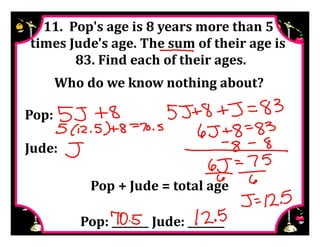 11. Pop's age is 8 years more than 5
times Jude's age. The sum of their age is
83. Find each of their ages.
Who do we know nothing about?
Pop: 5J + 8
5(12.5)+8=70.5
Jude: J
5J+8+J=83
6J+8=83
-8 -8
6J = 75
6 6
J=12.5
Pop + Jude = total age
Pop: 70.5 Jude: 12.5